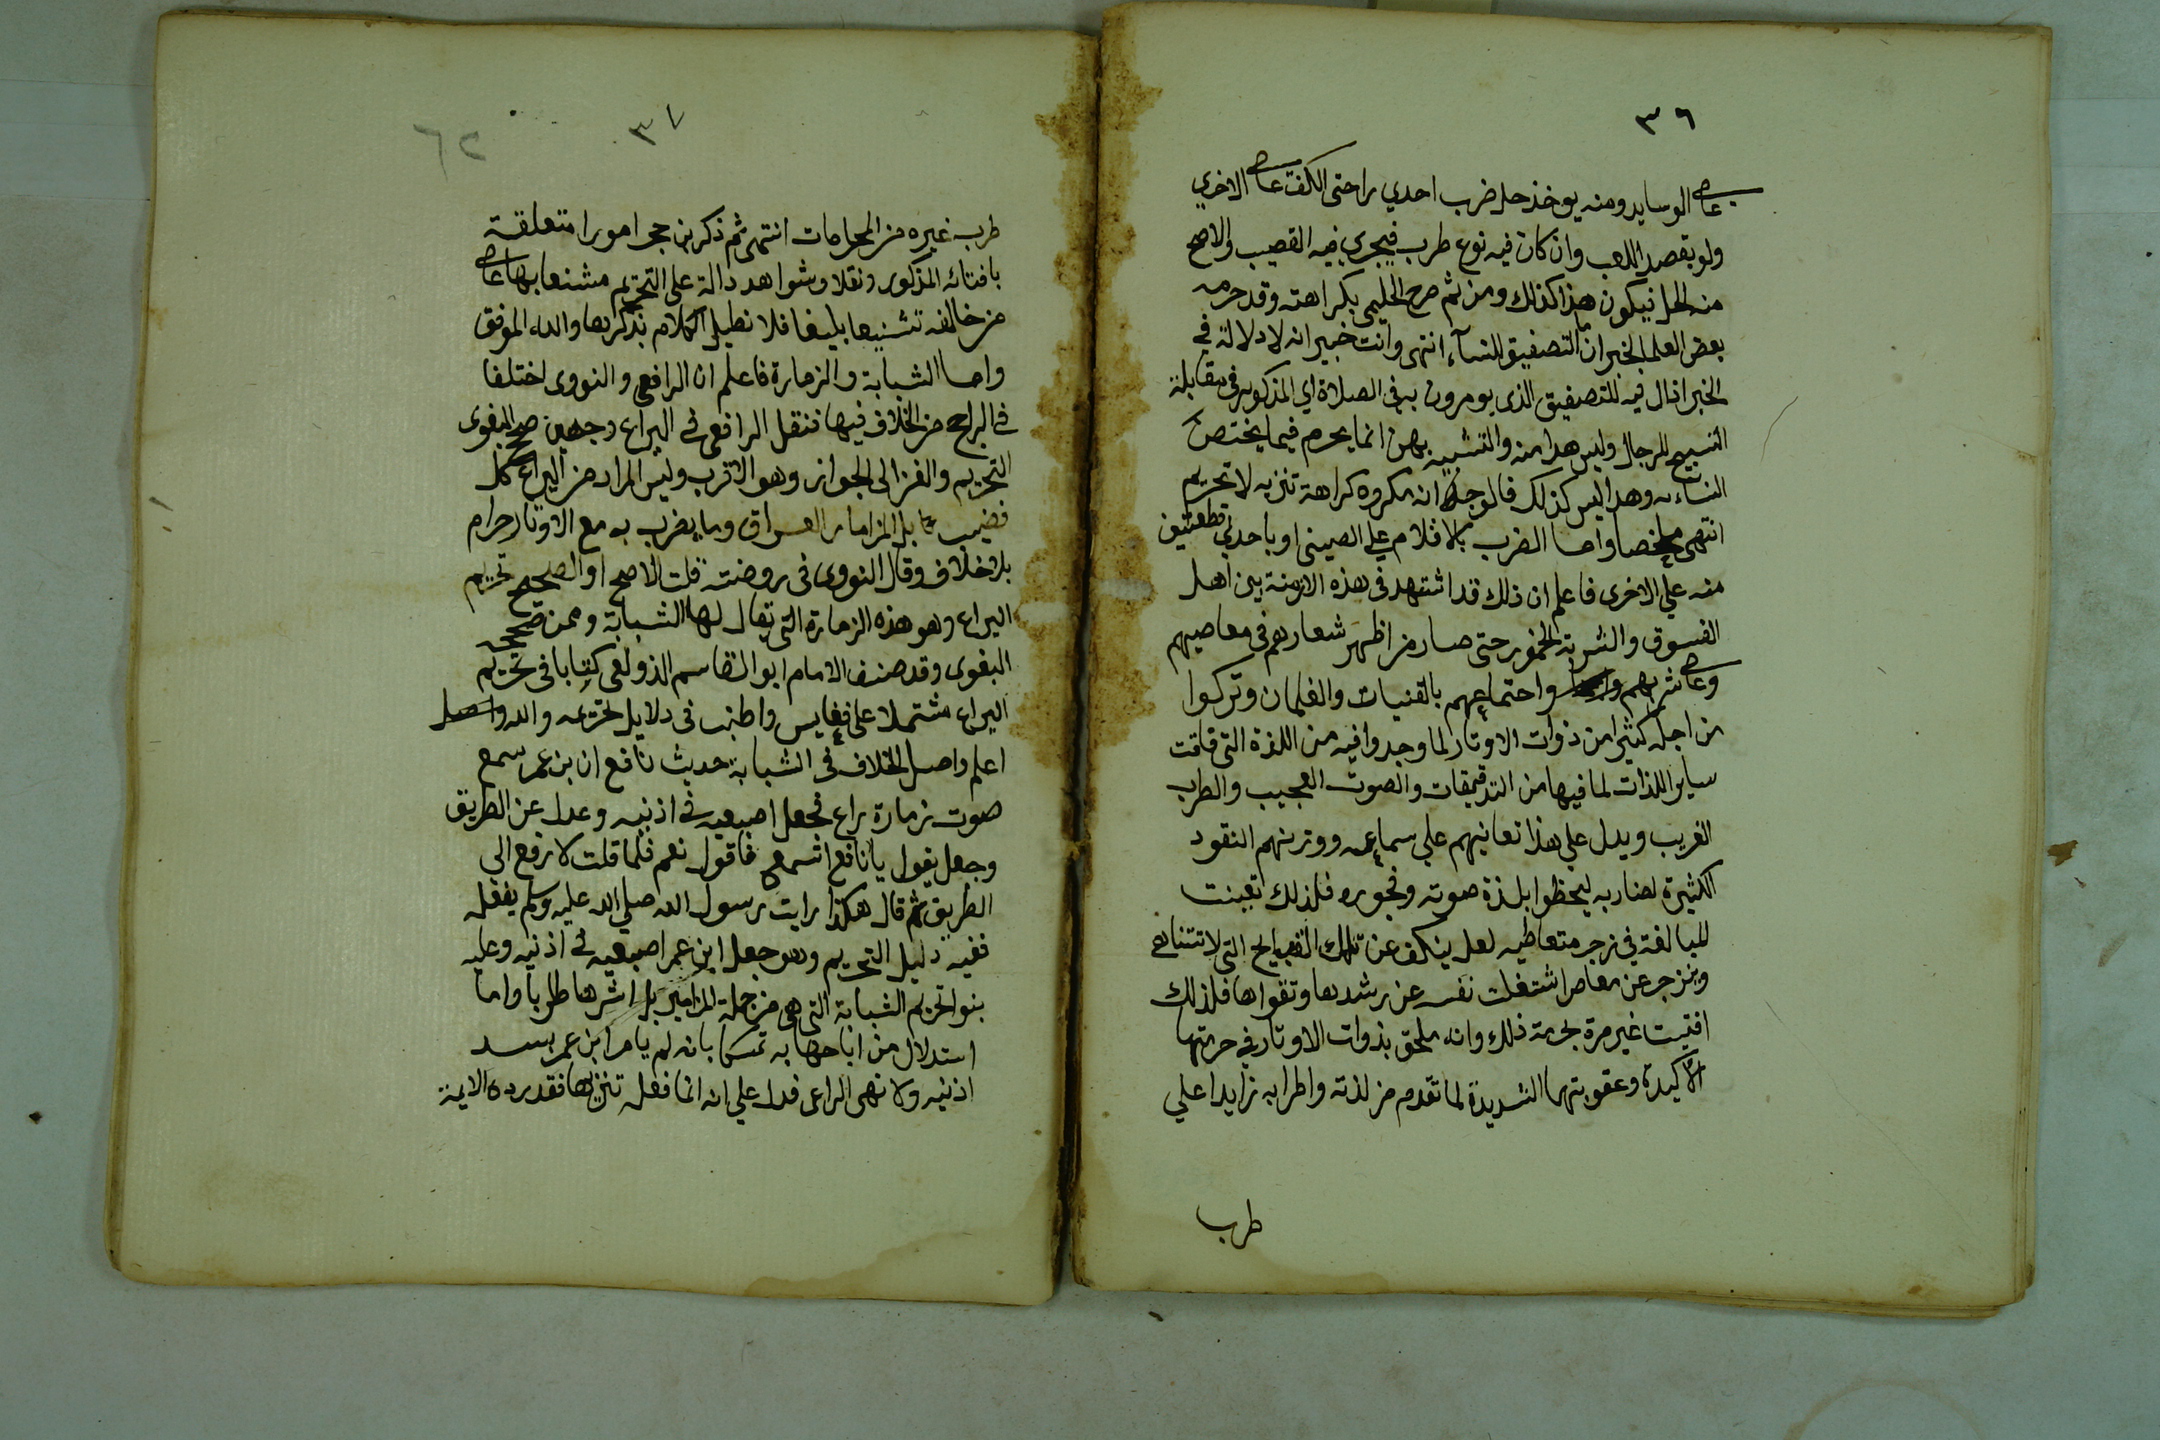 ٣٦
على الوسايد ومنه يوخذ حل ضرب احدي راحتى الكف على الاخري
ولو بقصد اللعب وان كان فيه نوع طرب فيجري فيه القصيب والاصح
منه الحل فيكون هذا كذلك ومن ثم صرح الحليمى بكراهته وقد حرمه
بعض العلما لخبر ان التصفيق للنسآء انتهى وانت خبير انه لا دلالة في
الخبر اذ ال فيه للتصفيق الذى يومرون به في الصلاة اي المذكور في مقابلة
التسبيح للرجال وليس هدا منه والتشبيه بهن انما يحرم فيما يختص
النساء به وهدا ليس كذلك فالوجه انه مكروه كراهة تنزيه لا تحريم
انتهى ملخصا واما الضرب بالاقلام على الصينى او باحدي قطعتين
منه علي الاخرى فاعلم ان ذلك قد اشتهد في هذه الازمنة بين اهل
الفسوق والشربة الخمور حتى صار من اظهر شعارهم في معاصيهم
وعلى شربهم واجتماعهم بالقنيات والغلمان وتركوا
من اجله كثيرا من ذوات الاوتار لما وجدوا فيه من اللذة التى فاقت
ساير اللذات لما فيها من التدقيقات والصوت العجيب والطرب
الغريب ويدل علي هذا تعانيهم علي سماعه ووزنهم النقود
الكثيرة لضاربه ليحظوا بلذة صوته وفجوره فلذلك تعينت
المبالغة في زجر متعاطيه لعل ينكف عن تلك القبايح التى لا تتناهى
وينزجر عن معاص اشتغلت نفسه عن رشدها وتقواها فلذلك
افتيت غير مرة بحرمة ذلك وانه ملحق بذوات الاوتار في حرمتها
الاكيدة وعقوبتها الشديدة لما تقدم من لذته واطرابه زايدا علي
طرب
٣٧
٦٢
طرب غيره من المحرمات انتهى ثم ذكر بن حجر امورا متعلقة
بافتائه المذكور ونقلا وشواهد دالة على التحريم مشنعا بها على
من خالفه تشنيعا بليغا فلا نطيل الكلام بذكرها والله الموفق
واما الشبابة والزمارة فاعلم ان الرافعى والنووى اختلفا
في الراجح من الخلاف فيها فنقل الرافعى في اليراع وجهين صحح البغوى
التحريم والغزالى الجواز وهو الاقرب وليس المراد من اليراع كل
قضيب بل المزامار العراق وما يضرب به مع الاوتار حرام
بلا خلاف وقال النووى فى روضته قلت الاصح او الصحيح تحريم
اليراع وهو هذه الزمارة التى يقال لها الشبابة وممن صححه
البغوى وقد صنف الامام ابو القاسم الذولعى كتابا فى تحريم
اليراع مشتملا على نفايس واطنب فى دلايل تحريمه والله
اعلم واصل الخلاف في الشبابة حديث نافع ان بن عمر سمع
صوت زمارة راع فجعل اصبعيه في اذنيه وعدل عن الطريق
وجعل يقول يا نافع اتسمع فاقول نعم فلما قلت لا رفع الى
الطريق ثم قال هكذا رايت رسول الله صلي الله عليه وسلم يفعله
ففيه دليل التحريم وهو جعل ابن عمر اصبعيه في اذنيه وعليه
بنوا تحريم الشبابة التى هى من جملة المزامير بل اشرها طلوبا واما
استدلال من اباحها به تمسكا بانه لم يامر ابن عمر بسد
اذنيه ولا نهى الراعى فدل علي انه انما فعله تنزيها فقد رده الايمة